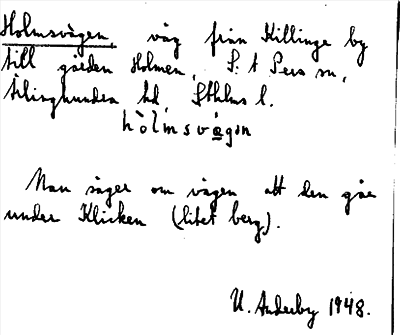 Holmsvägen, väg från Killinge by
till gården Holmen, S:t Pers sn,
Ärlinghundra hd, Sthlms l.
hòlmsvẹgən
Man säger om vägen att den går
under Klicken (litet berg).
U. Anderby 1948.